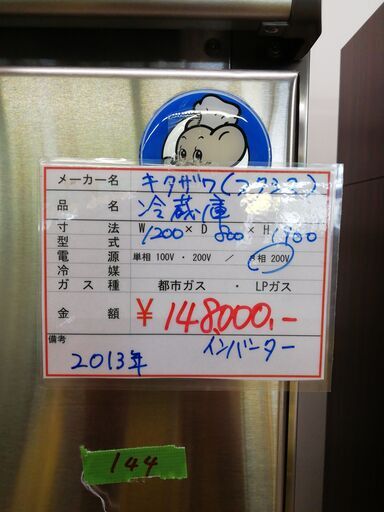 メーカー名 キタザワ(コクヨコ)
品 名 冷蔵庫
寸 法 W1200 × D 800 × H1900
型 式
電 源 単相 100V ・ 200V / 3相 200V
冷 媒
ガ ス 種 都市ガス ・ LPガス
金 額 ¥148,000,-
備考 インバーター
2013年
144